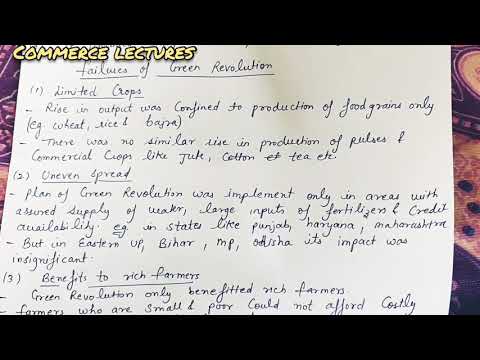 COMMERCE LECTURES
Failures of Green Revolution
(1) Limited Crops
- Rise in output was Confined to production of foodgrains only
(eg. wheat, rice & bajra)
- There was no similar rise in production of pulses &
Commercial Crops like Jute, Cotton tea etc.
(2) Uneven Spread
- Plan of Green Revolution was implement only in areas with
assured supply of water, large inputs of fertilizer & Credit
availability. eg in States like punjab, haryana, maharashtra
- But in Eastern UP, Bihar, MP, odisha its impact was
insignificant.
(3) Benefits to rich farmers
- Green Revolution only benefitted rich farmers.
- farmers who are small & poor Could not afford Costly